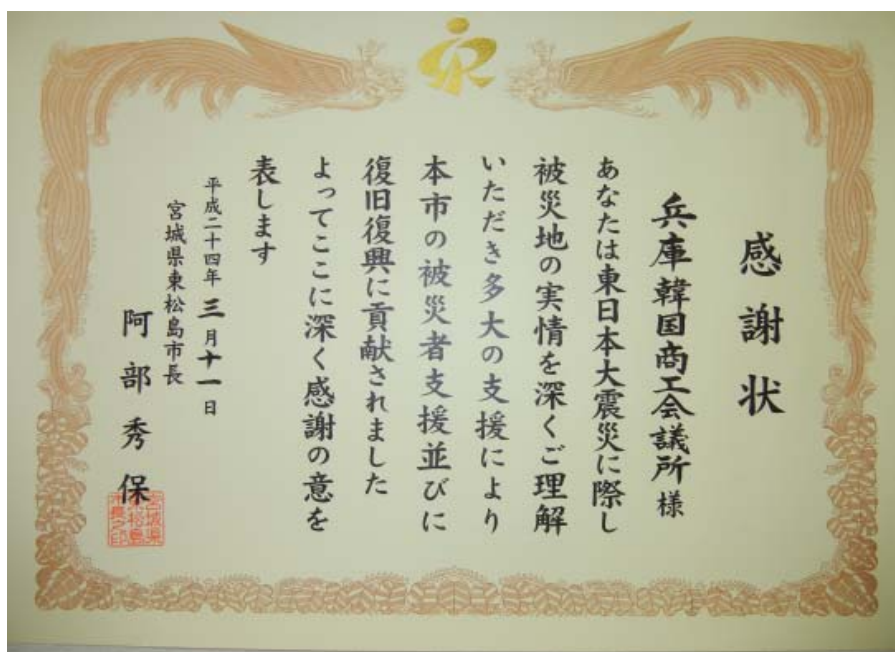 感謝状
兵庫韓国商工会議所様
あなたは東日本大震災に際し
被災地の実情を深くご理解
いただき多大の支援により
本市の被災者支援並びに
復旧復興に貢献されました
よってここに深く感謝の意を
表します
平成二十四年三月十一日
宮城県東松島市長
阿部秀保
宮城県
東松島
市長之印